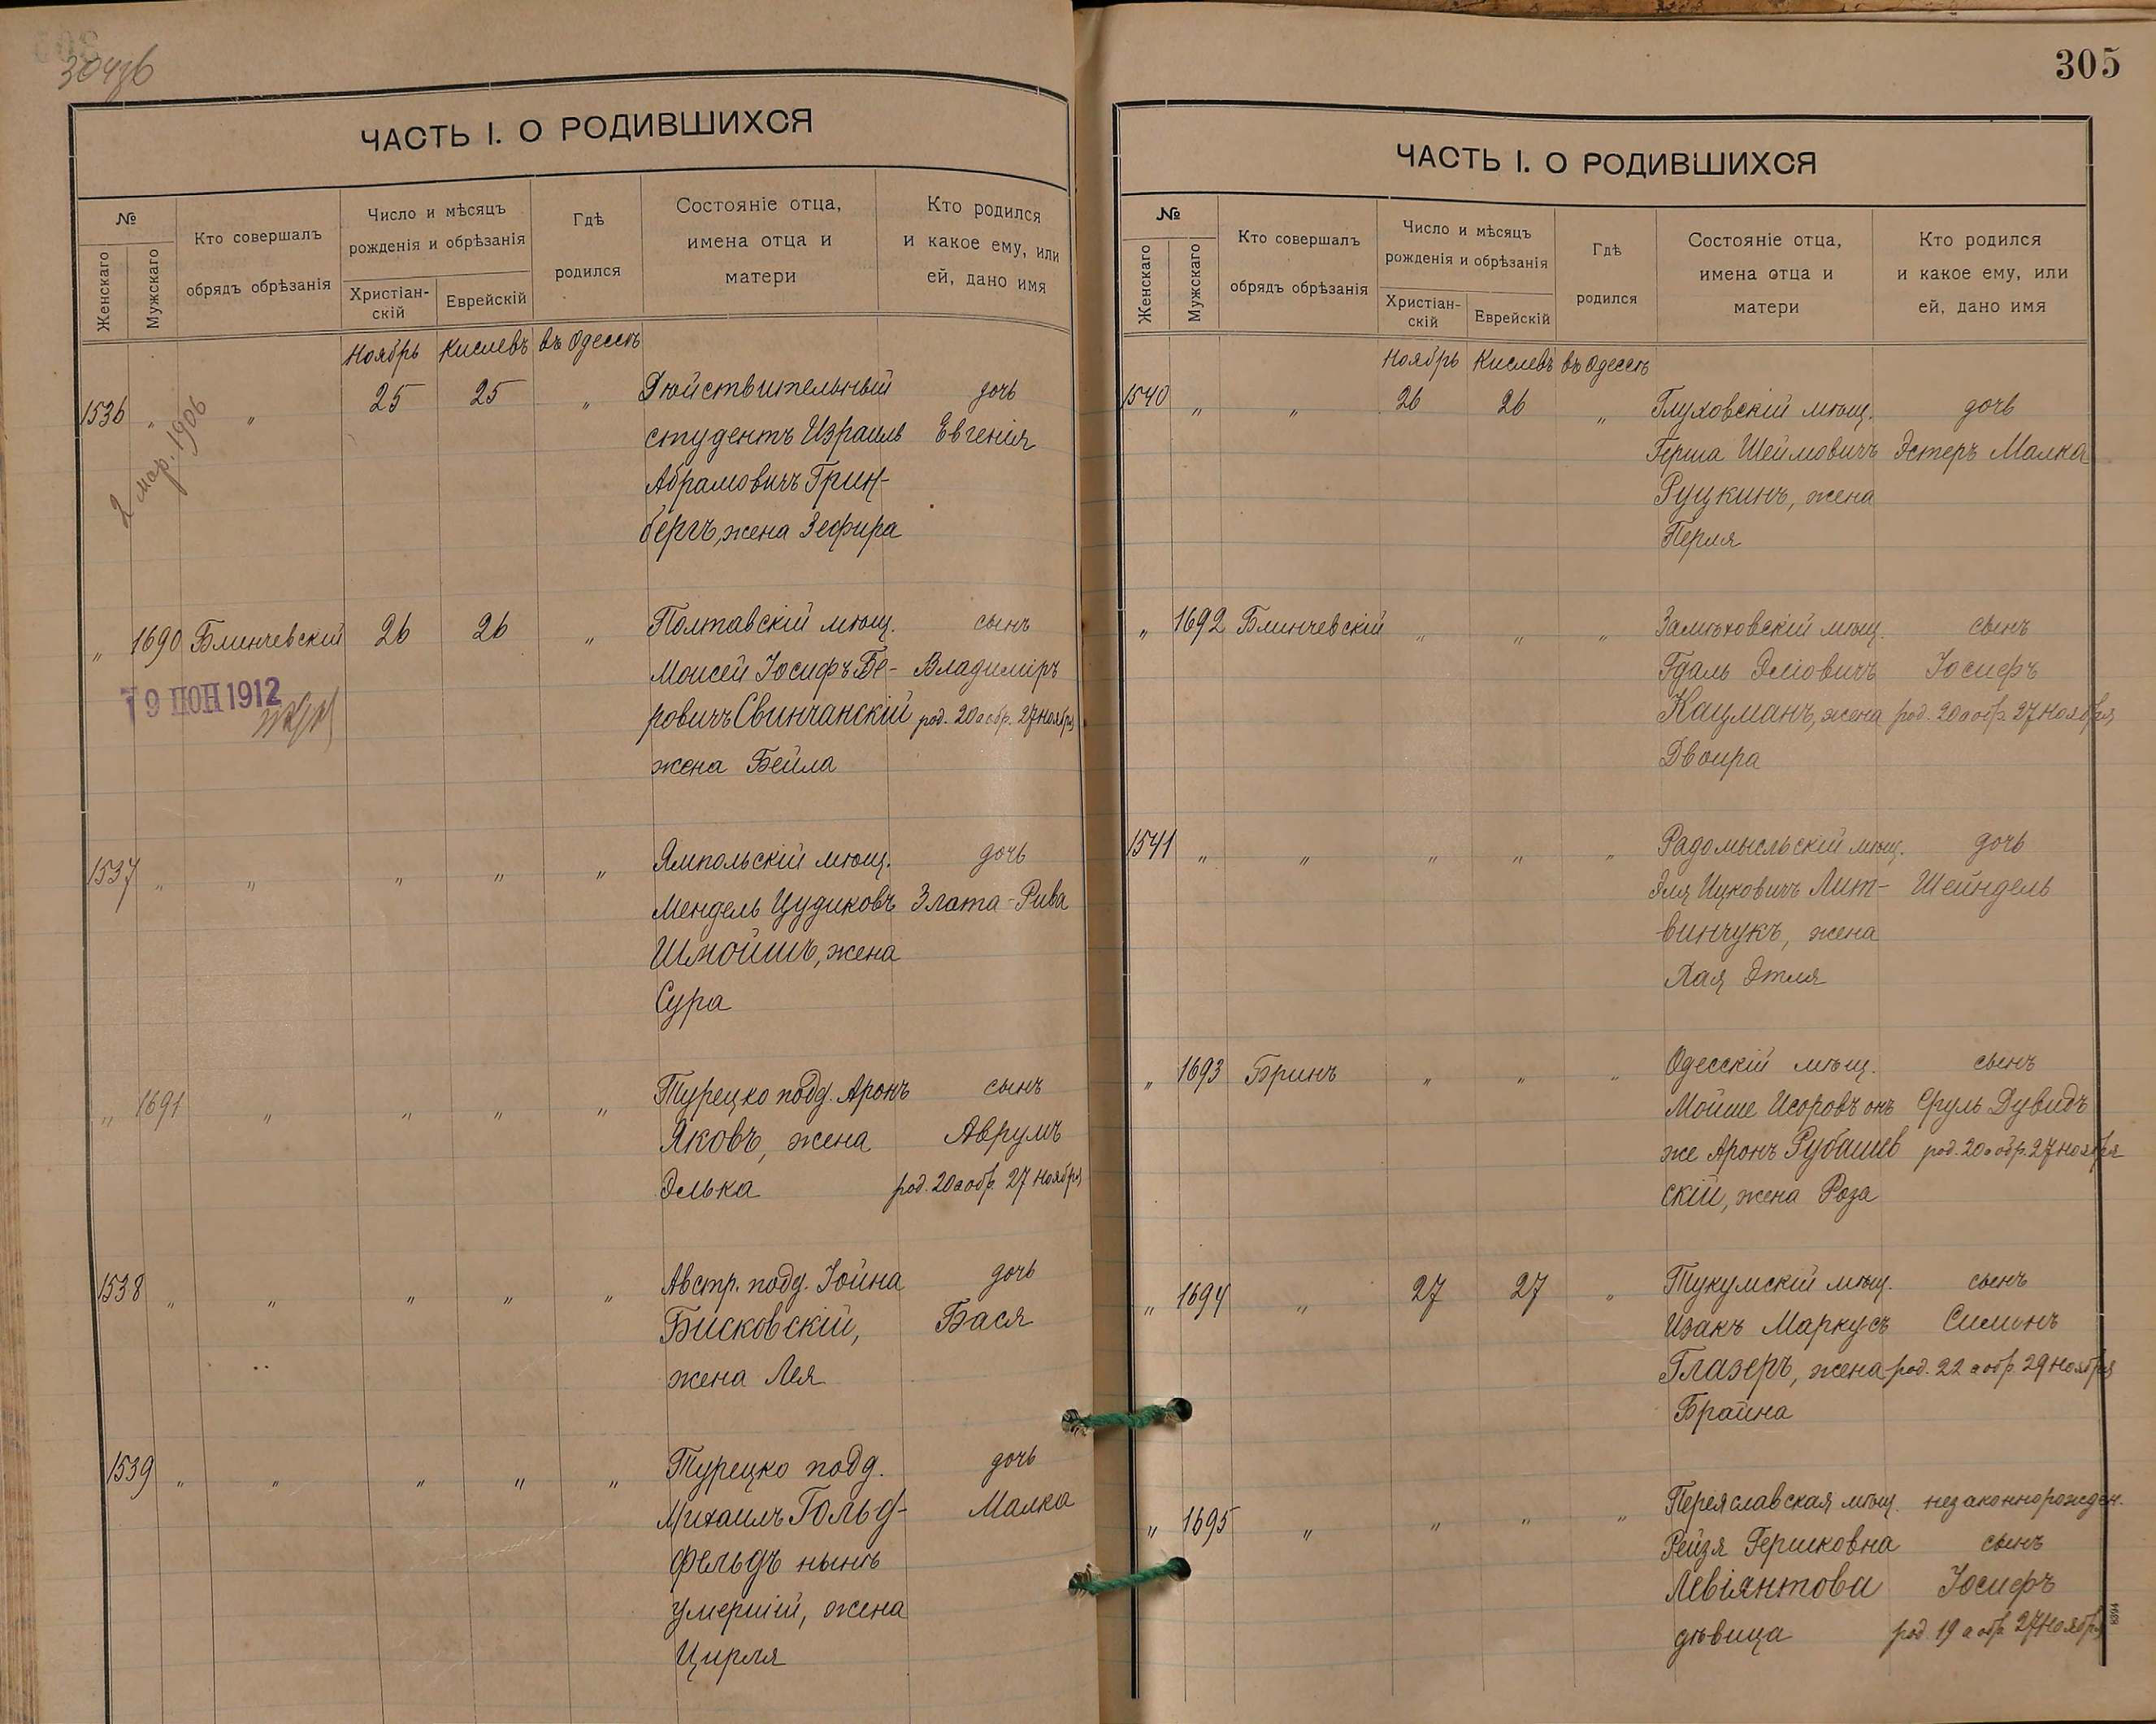 304об
ЧАСТЬ I. О РОДИВШИХСЯ
№
Женскаго
Мужскаго
Кто совершалъ
обрядъ обрѣзанія
Число и мѣсяцъ
рожденія и обрѣзанія
Христіан-
скій
Еврейскій
Гдѣ
родился
Состояніе отца,
имена отца и
матери
Кто родился
и какое ему, или
ей, дано имя
Ноябрь Кислевъ въ Одессѣ
1536 " " 25 25 " Дѣйствительный дочь
студентъ Израиль Евгенія
Абрамовичъ Грин-
бергъ, жена Зефира
2 мар. 1906
" 1690 Блинчевскій 26 26 " Полтавскій мѣщ. сынъ
Моисей Іосифъ Бе- Владиміръ
ровичъ Свинчанскій род. 20 а обр. 27 ноября
жена Бейла
19 ІЮН 1912
1537 " " " " " Ямпольскій мѣщ. дочь
Мендель Цудиковъ Злата-Рива
Шмойшъ, жена
Сура
" 1691 " " " " Турецко подд. Аронъ сынъ
Яковъ, жена Аврумъ
Элька род. 20 а обр. 27 ноября
1538 " " " " " Австр. подд. Іойна дочь
Бисковскій, Бася
жена Лея
1539 " " " " " Турецко подд. дочь
Михаилъ Гольд- Малка
фельдъ нынѣ
умершій, жена
Цирля
305
ЧАСТЬ I. О РОДИВШИХСЯ
№
Женскаго
Мужскаго
Кто совершалъ
обрядъ обрѣзанія
Число и мѣсяцъ
рожденія и обрѣзанія
Христіан-
скій
Еврейскій
Гдѣ
родился
Состояніе отца,
имена отца и
матери
Кто родился
и какое ему, или
ей, дано имя
Ноябрь Кислевъ въ Одессѣ
1540 " " 26 26 " Глуховскій мѣщ. дочь
Герша Шеймовичъ Эстеръ Малка
Руцкинъ, жена
Перля
" 1692 Блинчевскій " " " Замѣховскій мѣщ. сынъ
Гдаль Эліовичъ Іосифъ
Кацманъ, жена род. 20 а обр. 27 ноября
Двойра
1541 " " " " " Радомысльскій мѣщ. дочь
Эля Ицковичъ Лит- Шейндель
винчукъ, жена
Хая Этля
" 1693 Бринъ " " " Одесскій мѣщ. сынъ
Мойше Исоровъ онъ Сруль Дувидъ
же Аронъ Рубашев род. 20 а обр. 27 ноября
скій, жена Роза
" 1694 " 27 27 " Тукумскій мѣщ. сынъ
Изакъ Маркусъ Симонъ
Глазеръ, жена род. 22 а обр. 29 ноября
Брайна
" 1695 " " " " Переяславская мѣщ. незаконнорожден.
Рейзя Гершковна сынъ
Левіянтова Іосифъ
дѣвица род. 19 а обр. 27 ноября